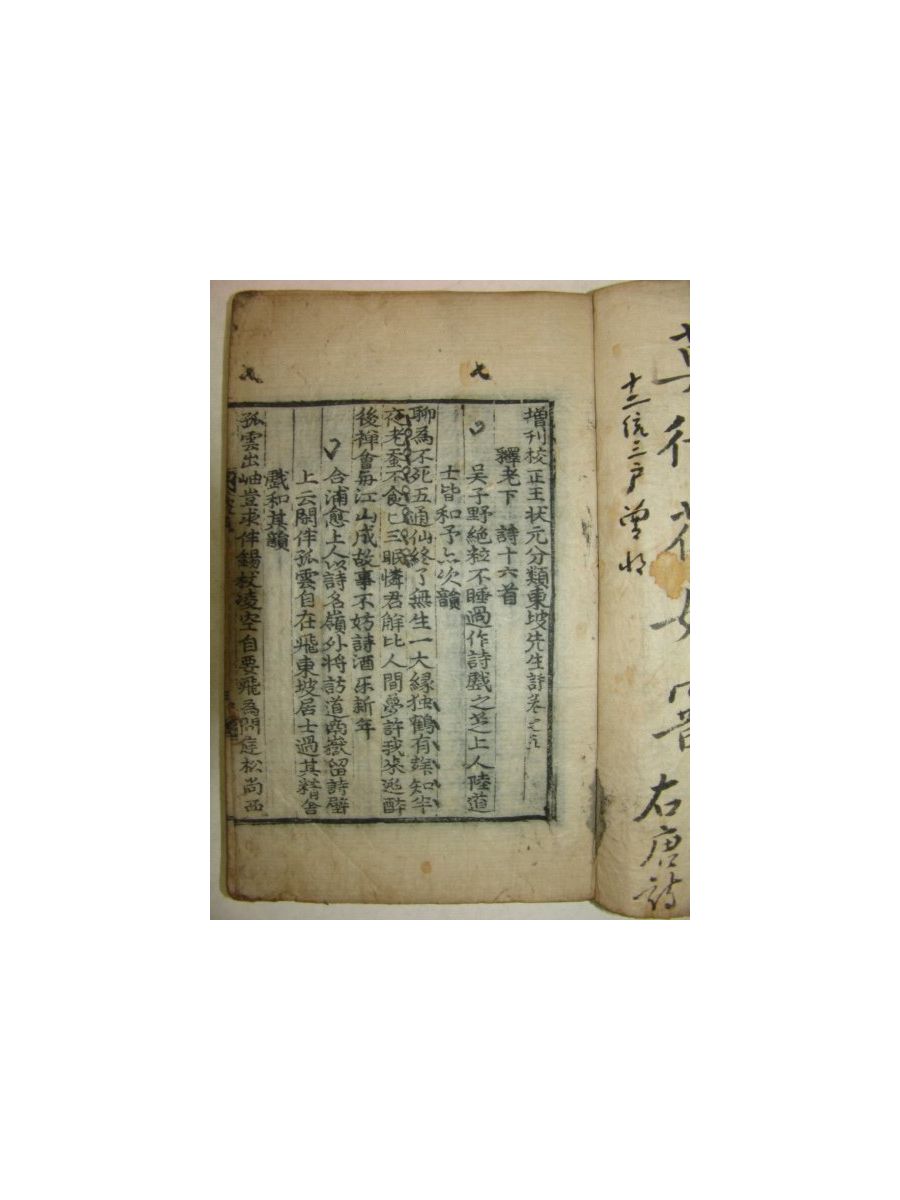 右唐詩
十二統三戶
七
七
增刊校正王狀元分類東坡先生詩卷之
釋老下 詩十六首
吴子野絶粒不睡過作詩戲之芝上人陸道
士皆和予亦次韻
聊為不死五通仙終了無生一大縁独鶴有謀知半
夜老蚕不食已三眠憐君解比人間夢許我来逃醉
後禅會每江山成故事不妨詩酒乐新年
合浦愈上人以詩名嶺外将訪道南嶽留詩壁
上云閑伴孤雲自在飛東坡居士過其精舎
戲和其韻
孤雲出岫豈求伴錫杖凌空自要飛為問庭松尚西